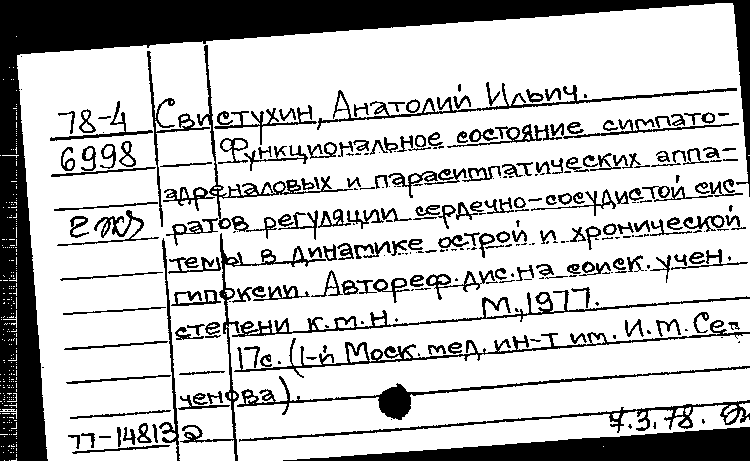 78-4 Свистухин, Анатолий Ильич.
6998 Функциональное состояние симпато-
адреналовых и парасимпатических аппа-
ратов регуляции сердечно-сосудистой сис-
темы в динамике острой и хронической
гипоксии. Автореф. дис. на соиск. учен.
степени к.м.н. М., 1977.
17с. (1-й Моск. мед. ин-т им. И.М. Се-
ченова).
77-14813
7.3.78.